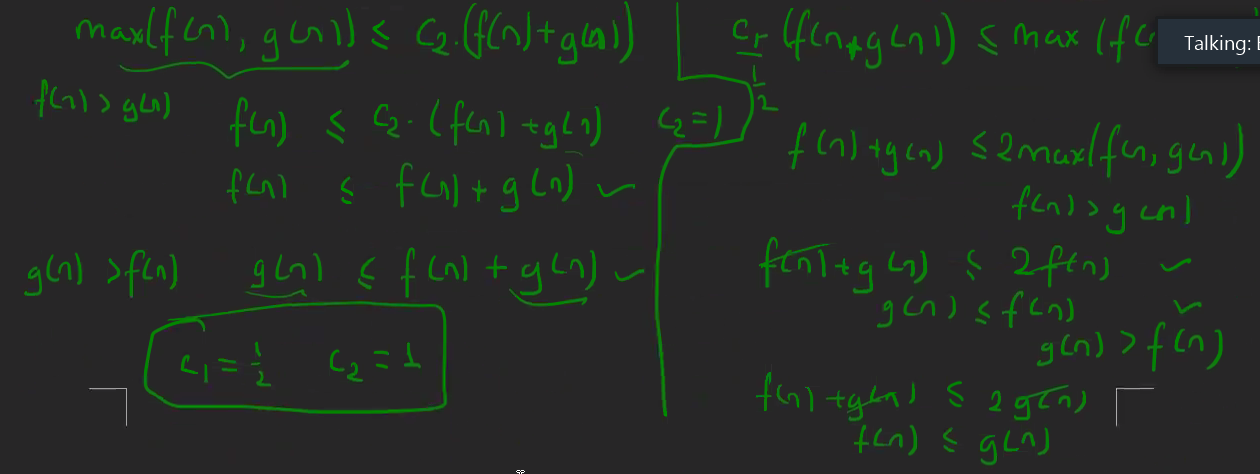 max(f(n), g(n)) ≤ C₂.(f(n)+g(n))
f(n) > g(n)
f(n) ≤ C₂. (f(n) + g(n))
C₂ = 1
f(n) ≤ f(n) + g(n) ✓
g(n) > f(n) g(n) ≤ f(n) + g(n) ✓
C₁ = 1/2 C₂ = 1
(f(n+g(n)) ≤ max (f(
Talking:
1/2
f(n) + g(n) ≤ 2max(f(n, g(n))
f(n) > g(n)
f(n) + g(n) ≤ 2f(n) ✓
g(n) ≤ f(n) ✓
g(n) > f(n)
f(n) + g(n) ≤ 2g(n)
f(n) ≤ g(n)